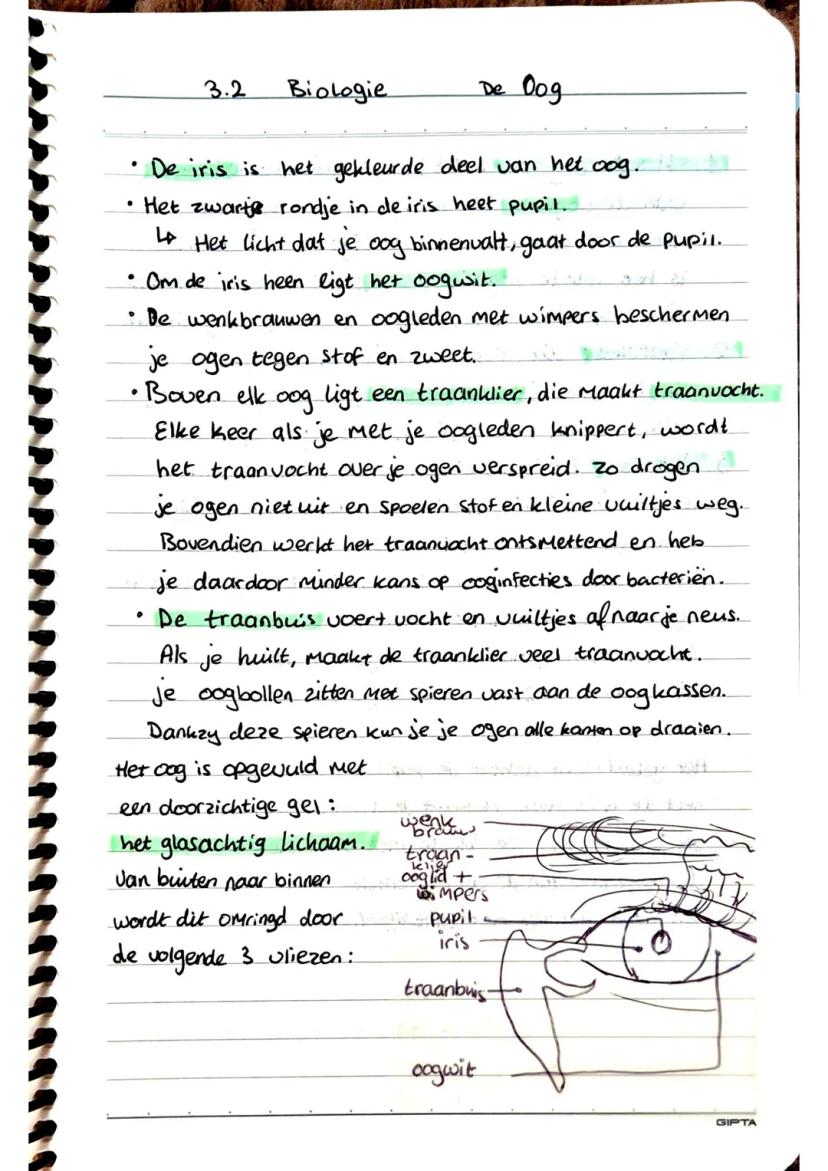 3.2 Biologie De Oog
• De iris is het gekleurde deel van het oog.
• Het zwarte rondje in de iris heet pupil.
↳ Het licht dat je oog binnenvalt, gaat door de pupil.
• Om de iris heen ligt het oogwit.
• De wenkbrauwen en oogleden met wimpers beschermen
je ogen tegen stof en zweet.
• Boven elk oog ligt een traanklier, die maakt traanvocht.
Elke keer als je met je oogleden knippert, wordt
het traanvocht over je ogen verspreid. Zo drogen
je ogen niet uit en spoelen stof en kleine vuiltjes weg.
Bovendien werkt het traanvocht ontsmettend en heb
je daardoor minder kans op ooginfecties door bacteriën.
• De traanbuis voert vocht en vuiltjes af naar je neus.
Als je huilt, maakt de traanklier veel traanvocht.
je oogbollen zitten met spieren vast aan de oogkassen.
Dankzy deze spieren kun je je ogen alle kanten op draaien.
Het oog is opgevuld met
een doorzichtige gel:
het glasachtig lichaam.
Van buiten naar binnen
wordt dit omringd door
de volgende 3 vliezen:
wenk
brauw
traan-
klier
ooglid +
wimpers
pupil
iris
traanbuis
oogwit
GIPTA